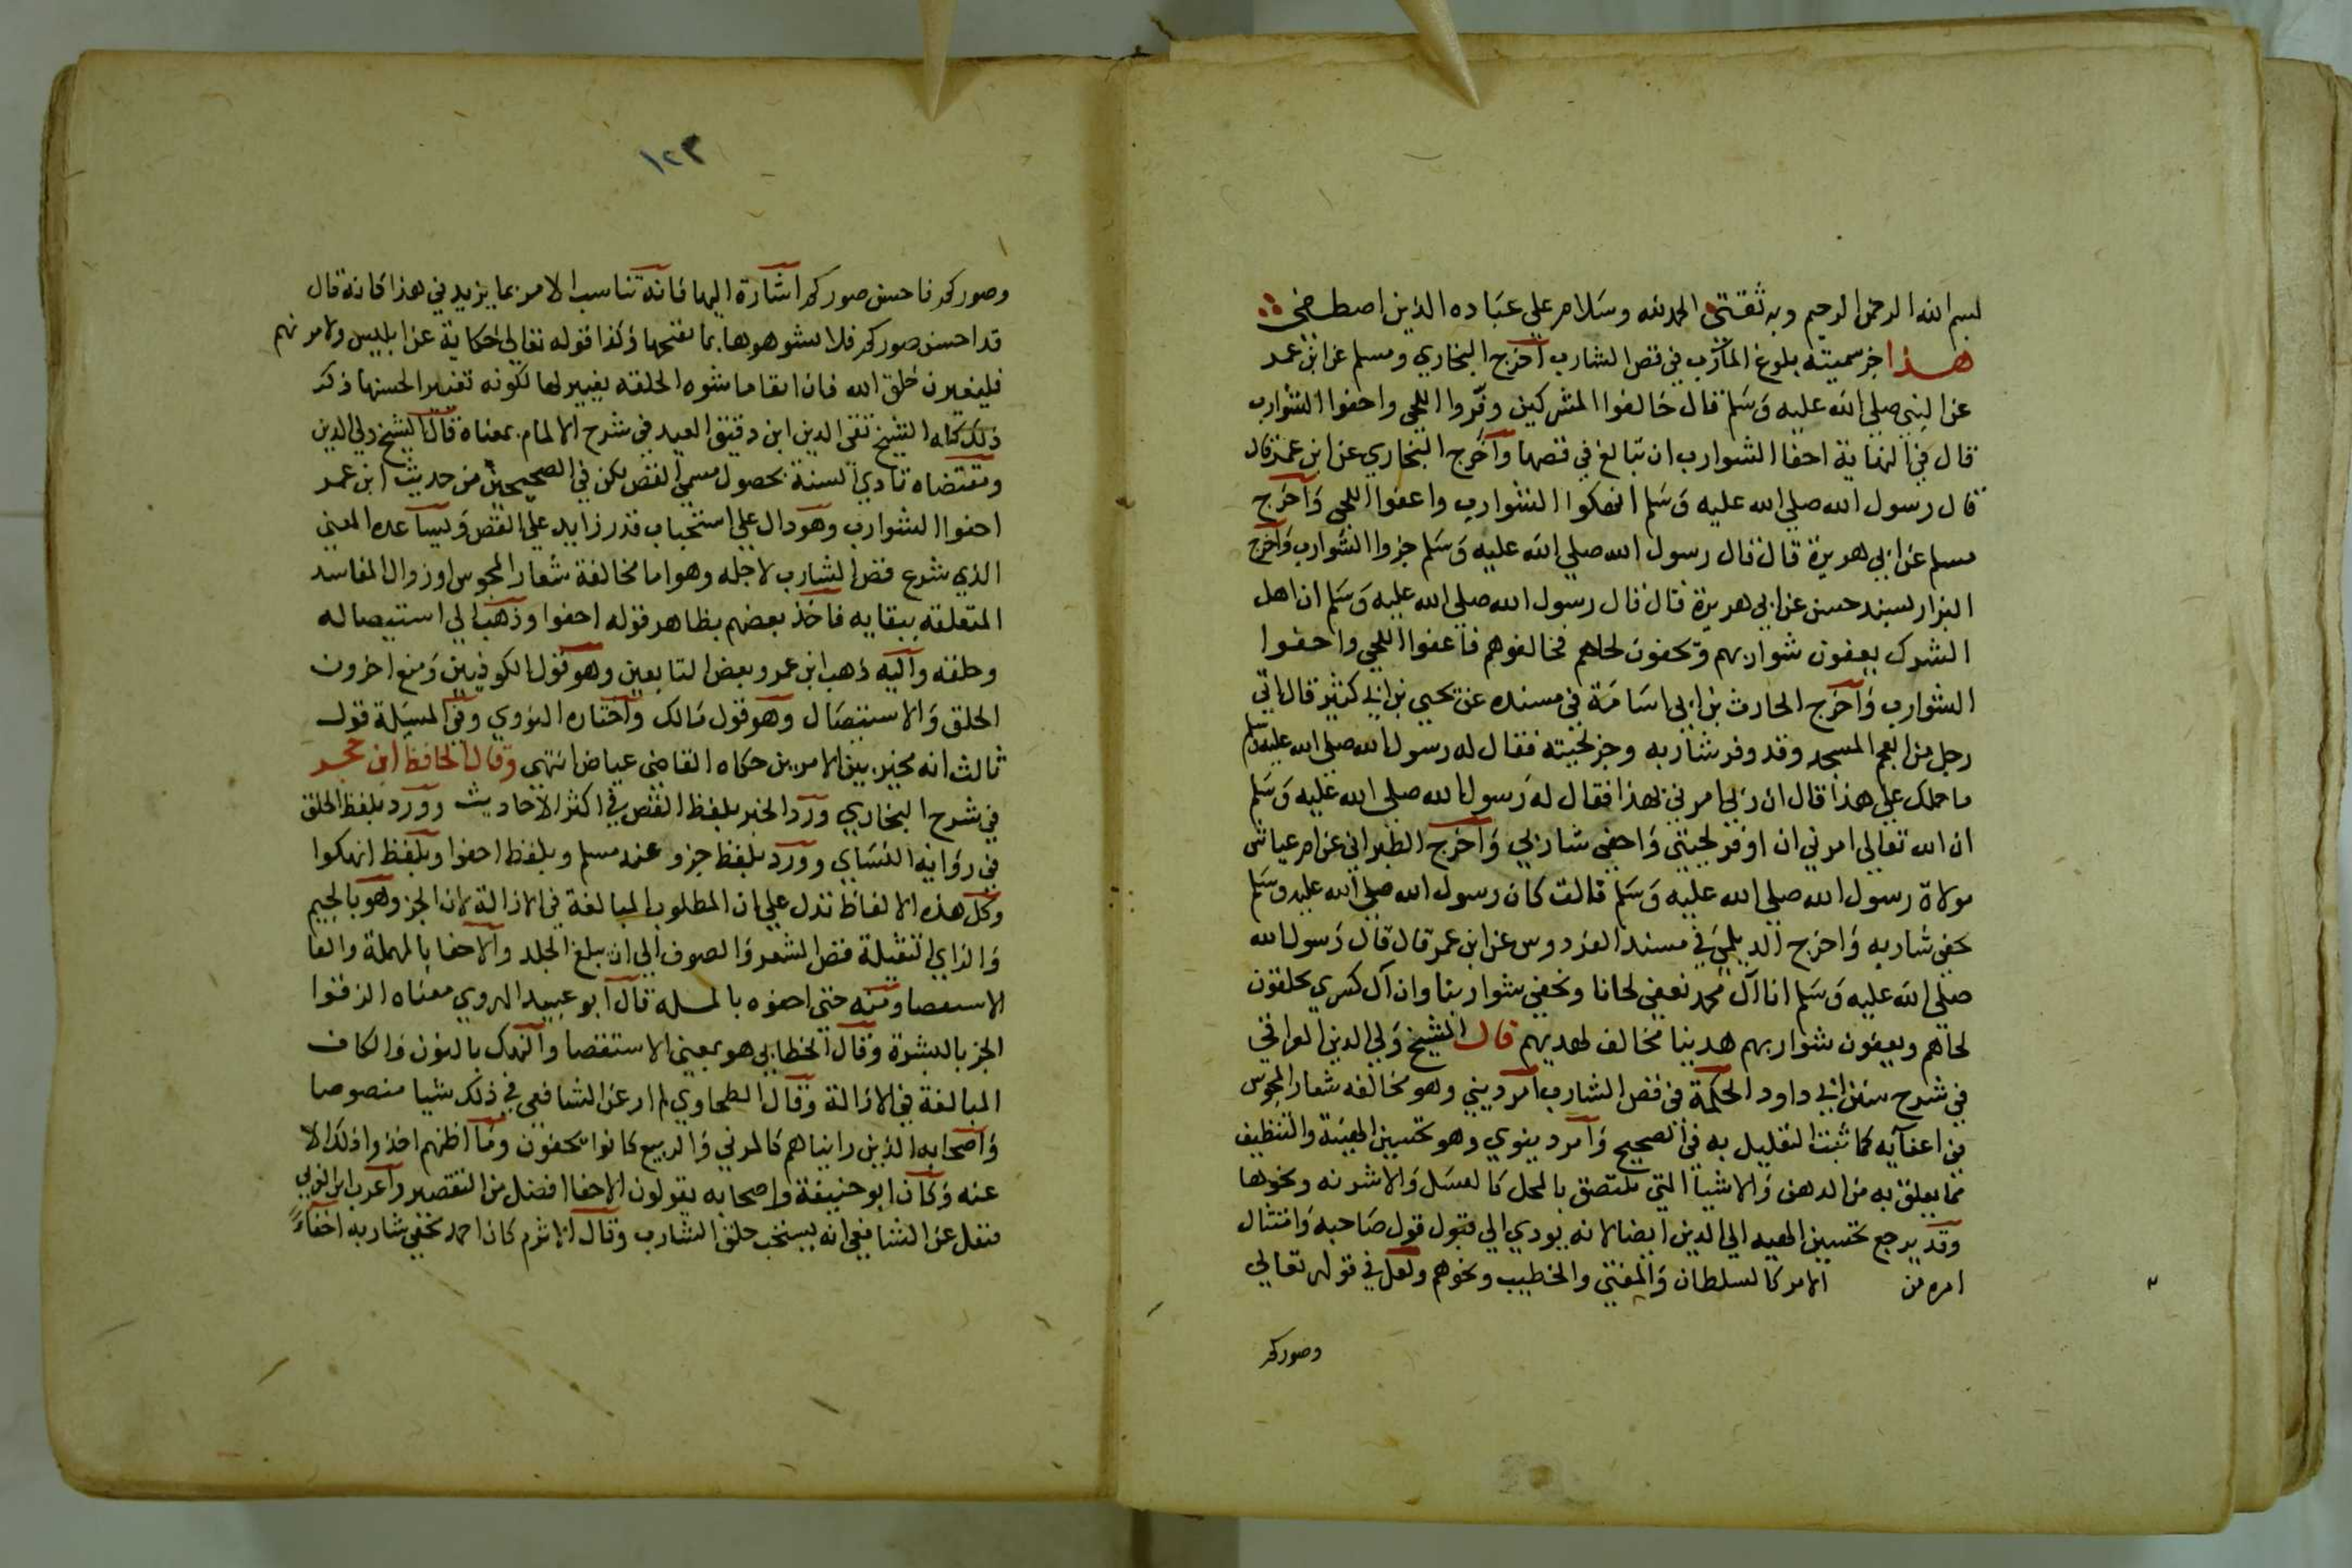 بسم الله الرحمن الرحيم وبه ثقتي الحمد لله وسلام على عباده الذين اصطفى
هذا جز سميته بلوغ المآرب في قص الشارب اخرج البخاري ومسلم عن ابن عمر
عن النبي صلى الله عليه وسلم قال خالفوا المشركين وفروا اللحى واحفوا الشوارب
قال في النهاية احفا الشوارب ان تبالغ في قصها واخرج البخاري عن ابن عمر قال
قال رسول الله صلى الله عليه وسلم انهكوا الشوارب واعفوا اللحى واخرج
مسلم عن ابي هريرة قال قال رسول الله صلى الله عليه وسلم جزوا الشوارب واخرج
البزار بسند حسن عن ابي هريرة قال قال رسول الله صلى الله عليه وسلم ان اهل
الشرك يعفون شواربهم ويحفون لحاهم فخالفوهم فاعفوا اللحى واحفوا
الشوارب واخرج الحارث بن ابي اسامة في مسنده عن يحيى بن ابي كثير قال اتى
رجل من العجم المسجد وقد وفر شاربه وجز لحيته فقال له رسول الله صلى الله عليه وسلم
ما حملك على هذا قال ان ربي امرني بهذا فقال له رسول الله صلى الله عليه وسلم
ان الله تعالى امرني ان اوفر لحيتي واحفي شاربي واخرج الطبراني عن ام عياش
مولاة رسول الله صلى الله عليه وسلم قالت كان رسول الله صلى الله عليه وسلم
يحفي شاربه واخرج الديلمي في مسند الفردوس عن ابن عمر قال قال رسول الله
صلى الله عليه وسلم انا آل محمد نعفي لحانا ونحفي شواربنا وان آل كسرى يحلقون
لحاهم ويعفون شواربهم هدينا مخالف لهديهم قال الشيخ ولي الدين العراقي
في شرح سنن ابي داود الحكمة في قص الشارب امر ديني وهو مخالفه شعار المجوس
في اعفآيه كما ثبت التعليل به في الصحيح وامر دينوي وهو تحسين الهيئة والتنظيف
مما يعلق به من الدهن والاشيا التي تلتصق بالمحل كالعسل والاشربه ونحوها
وقد يرجع تحسين الهيه الى الدين ايضا لانه يودي الى قبول قول صاحبه وامتثال
امره من الامر كالسلطان والمفتي والخطيب ونحوهم ولعل في قوله تعالى
وصوركم
١٢٣
وصوركم فاحسن صوركم اشارة اليها فانه تناسب الامر بما يزيد في هذا فانه قال
قد احسن صوركم فلا تشوهوها بما يقبحها وكذا قوله تعالى حكاية عن ابليس ولامرنهم
فليغيرن خلق الله فان ابقا ما شوه الخلقه تغيير لها لكونه تغيير الحسنها ذكر
ذلك كله الشيخ تقي الدين ابن دقيق العيد في شرح الالمام بمعناه قال الشيخ ولي الدين
ومقتضاه تادي السنة بحصول مسمى القص لكن في الصحيحين من حديث ابن عمر
احفوا الشوارب وهو دال على استحباب قدر زايد على القص ويساعده المعنى
الذي شرع قص الشارب لاجله وهو اما مخالفة شعار المجوس او زوال المفاسد
المتعلقة ببقايه فاخذ بعضهم بظاهر قوله احفوا وذهب الى استيصاله
وحلقه واليه ذهب ابن عمر وبعض التابعين وهو قول الكوفيين ومنع اخرون
الحلق والاستيصال وهو قول مالك واختاره النووي وفي المسيلة قول
ثالث انه مخير بين الامرين حكاه القاضي عياض انتهى وقال الحافظ ابن حجر
في شرح البخاري ورد الخبر بلفظ القص في اكثر الاحاديث وورد بلفظ الحلق
في رواية النساي وورد بلفظ جزو عند مسلم وبلفظ احفوا وبلفظ انهكوا
وكل هذه الالفاظ تدل على ان المطلوب المبالغة في الازالة لان الجز وهو بالجيم
والزاي الثقيلة قص الشعر والصوف الى ان يبلغ الجلد والاحفا بالمهملة والفا
الاستقصا ومنه حتى احفوه بالمسله قال ابو عبيد الهروي معناه الزقوا
الجز بالبشرة وقال الخطابي هو بمعنى الاستقصا والنهك بالنون والكاف
المبالغة في الازالة وقال الطحاوي لم ار عن الشافعي في ذلك شيا منصوصا
واصحابه الذين رايناهم كالمزني والربيع كانوا يحفون وما اظنهم اخذوا ذلك الا
عنه وكان ابو حنيفة واصحابه يقولون الاحفا افضل من التقصير واغرب ابن العربي
فنقل عن الشافعي انه يستحب حلق الشارب وقال الاثرم كان احمد يحفي شاربه احفاءً